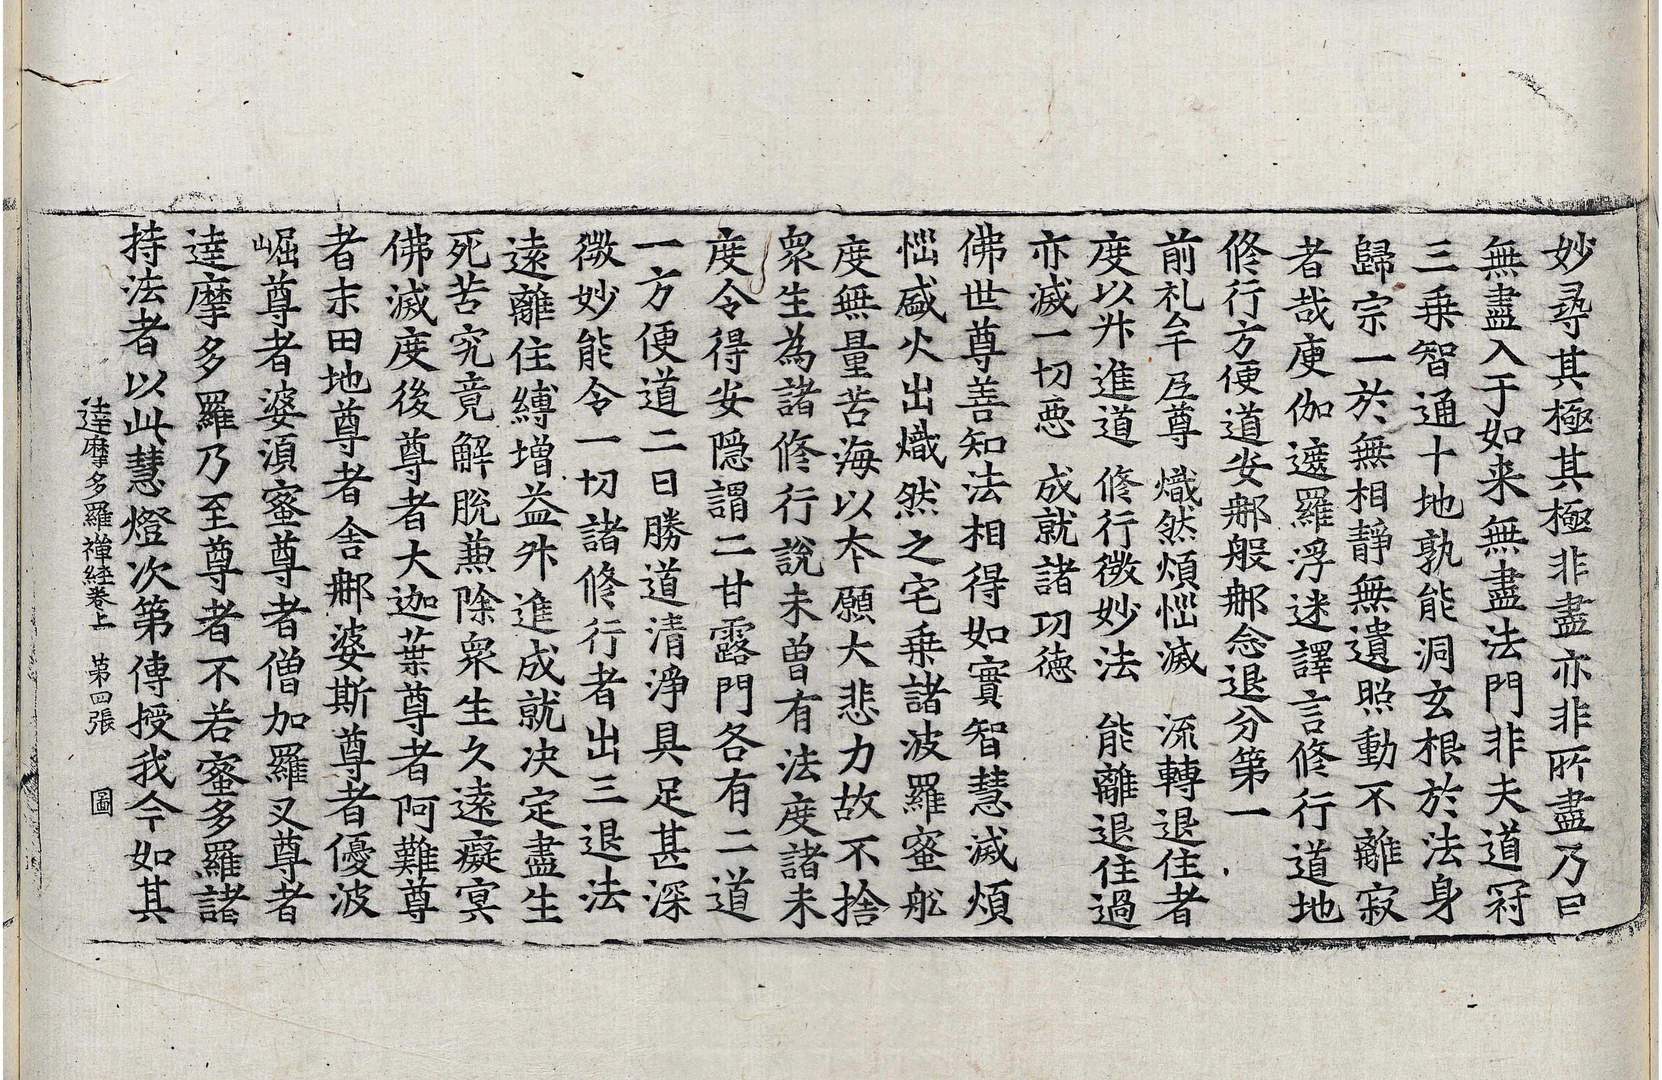 妙尋其極其極非盡亦非所盡乃曰
無盡入于如来無盡法門非夫道冠
三乗智通十地孰能洞玄根於法身
歸宗一於無相靜無遺照動不離寂
者哉庾伽遮羅浮迷譯言修行道地
修行方便道安那般那念退分第一
前礼牟尼尊 熾然煩惱滅 流轉退住者
度以升進道 修行微妙法 能離退住過
亦滅一切惡 成就諸功德
佛世尊善知法相得如實智慧滅煩
惱盛火出熾然之宅乗諸波羅蜜舩
度無量苦海以夲願大悲力故不捨
衆生為諸修行說未曾有法度諸未
度令得安隠謂二甘露門各有二道
一方便道二曰勝道清淨具足甚深
微妙能令一切諸修行者出三退法
遠離住縛增益升進成就决定盡生
死苦究竟解脫兼除衆生久遠癡冥
佛滅度後尊者大迦葉尊者阿難尊
者末田地尊者舎那婆斯尊者優波
崛尊者婆須蜜尊者僧加羅叉尊者
達摩多羅乃至尊者不若蜜多羅諸
持法者以此慧燈次第傳授我今如其
達摩多羅禪経卷上 第四張 圖